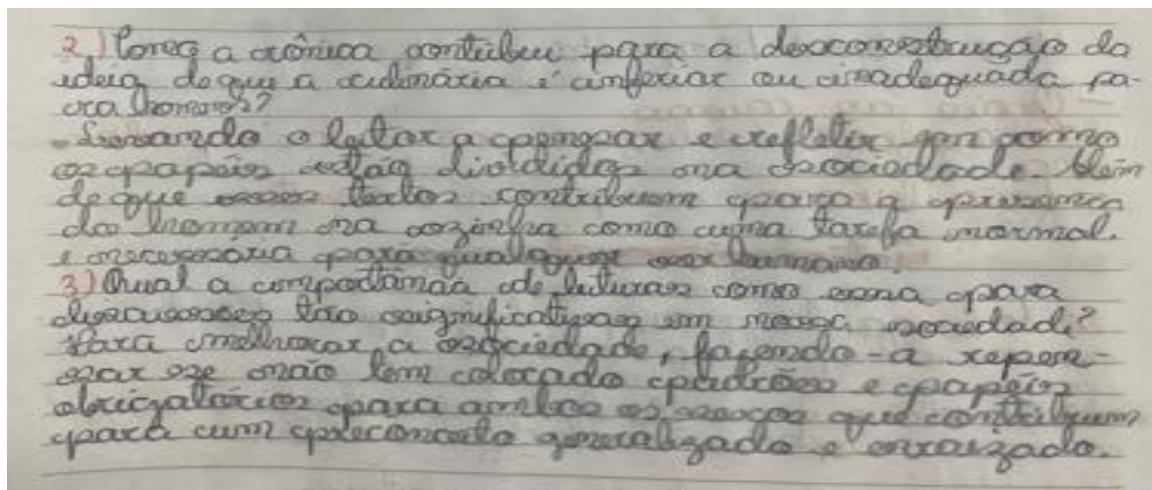 2) Como a crônica contribui para a desconstrução da
ideia de que a culinária é inferior ou inadequada pa-
ra homens?
- Levando o leitor a pensar e refletir em como
os papéis estão divididos na sociedade. Além
de que esses textos contribuem para a presença
do homem na cozinha como uma tarefa normal
e necessária para qualquer ser humano.
3) Qual a importância de leituras como essa para
discussões tão significativas em nossa sociedade?
Para melhorar a sociedade, fazendo-a repen-
sar se não tem colocado padrões e papéis
obrigatórios para ambos os sexos que contribuem
para um preconceito generalizado e enraizado.